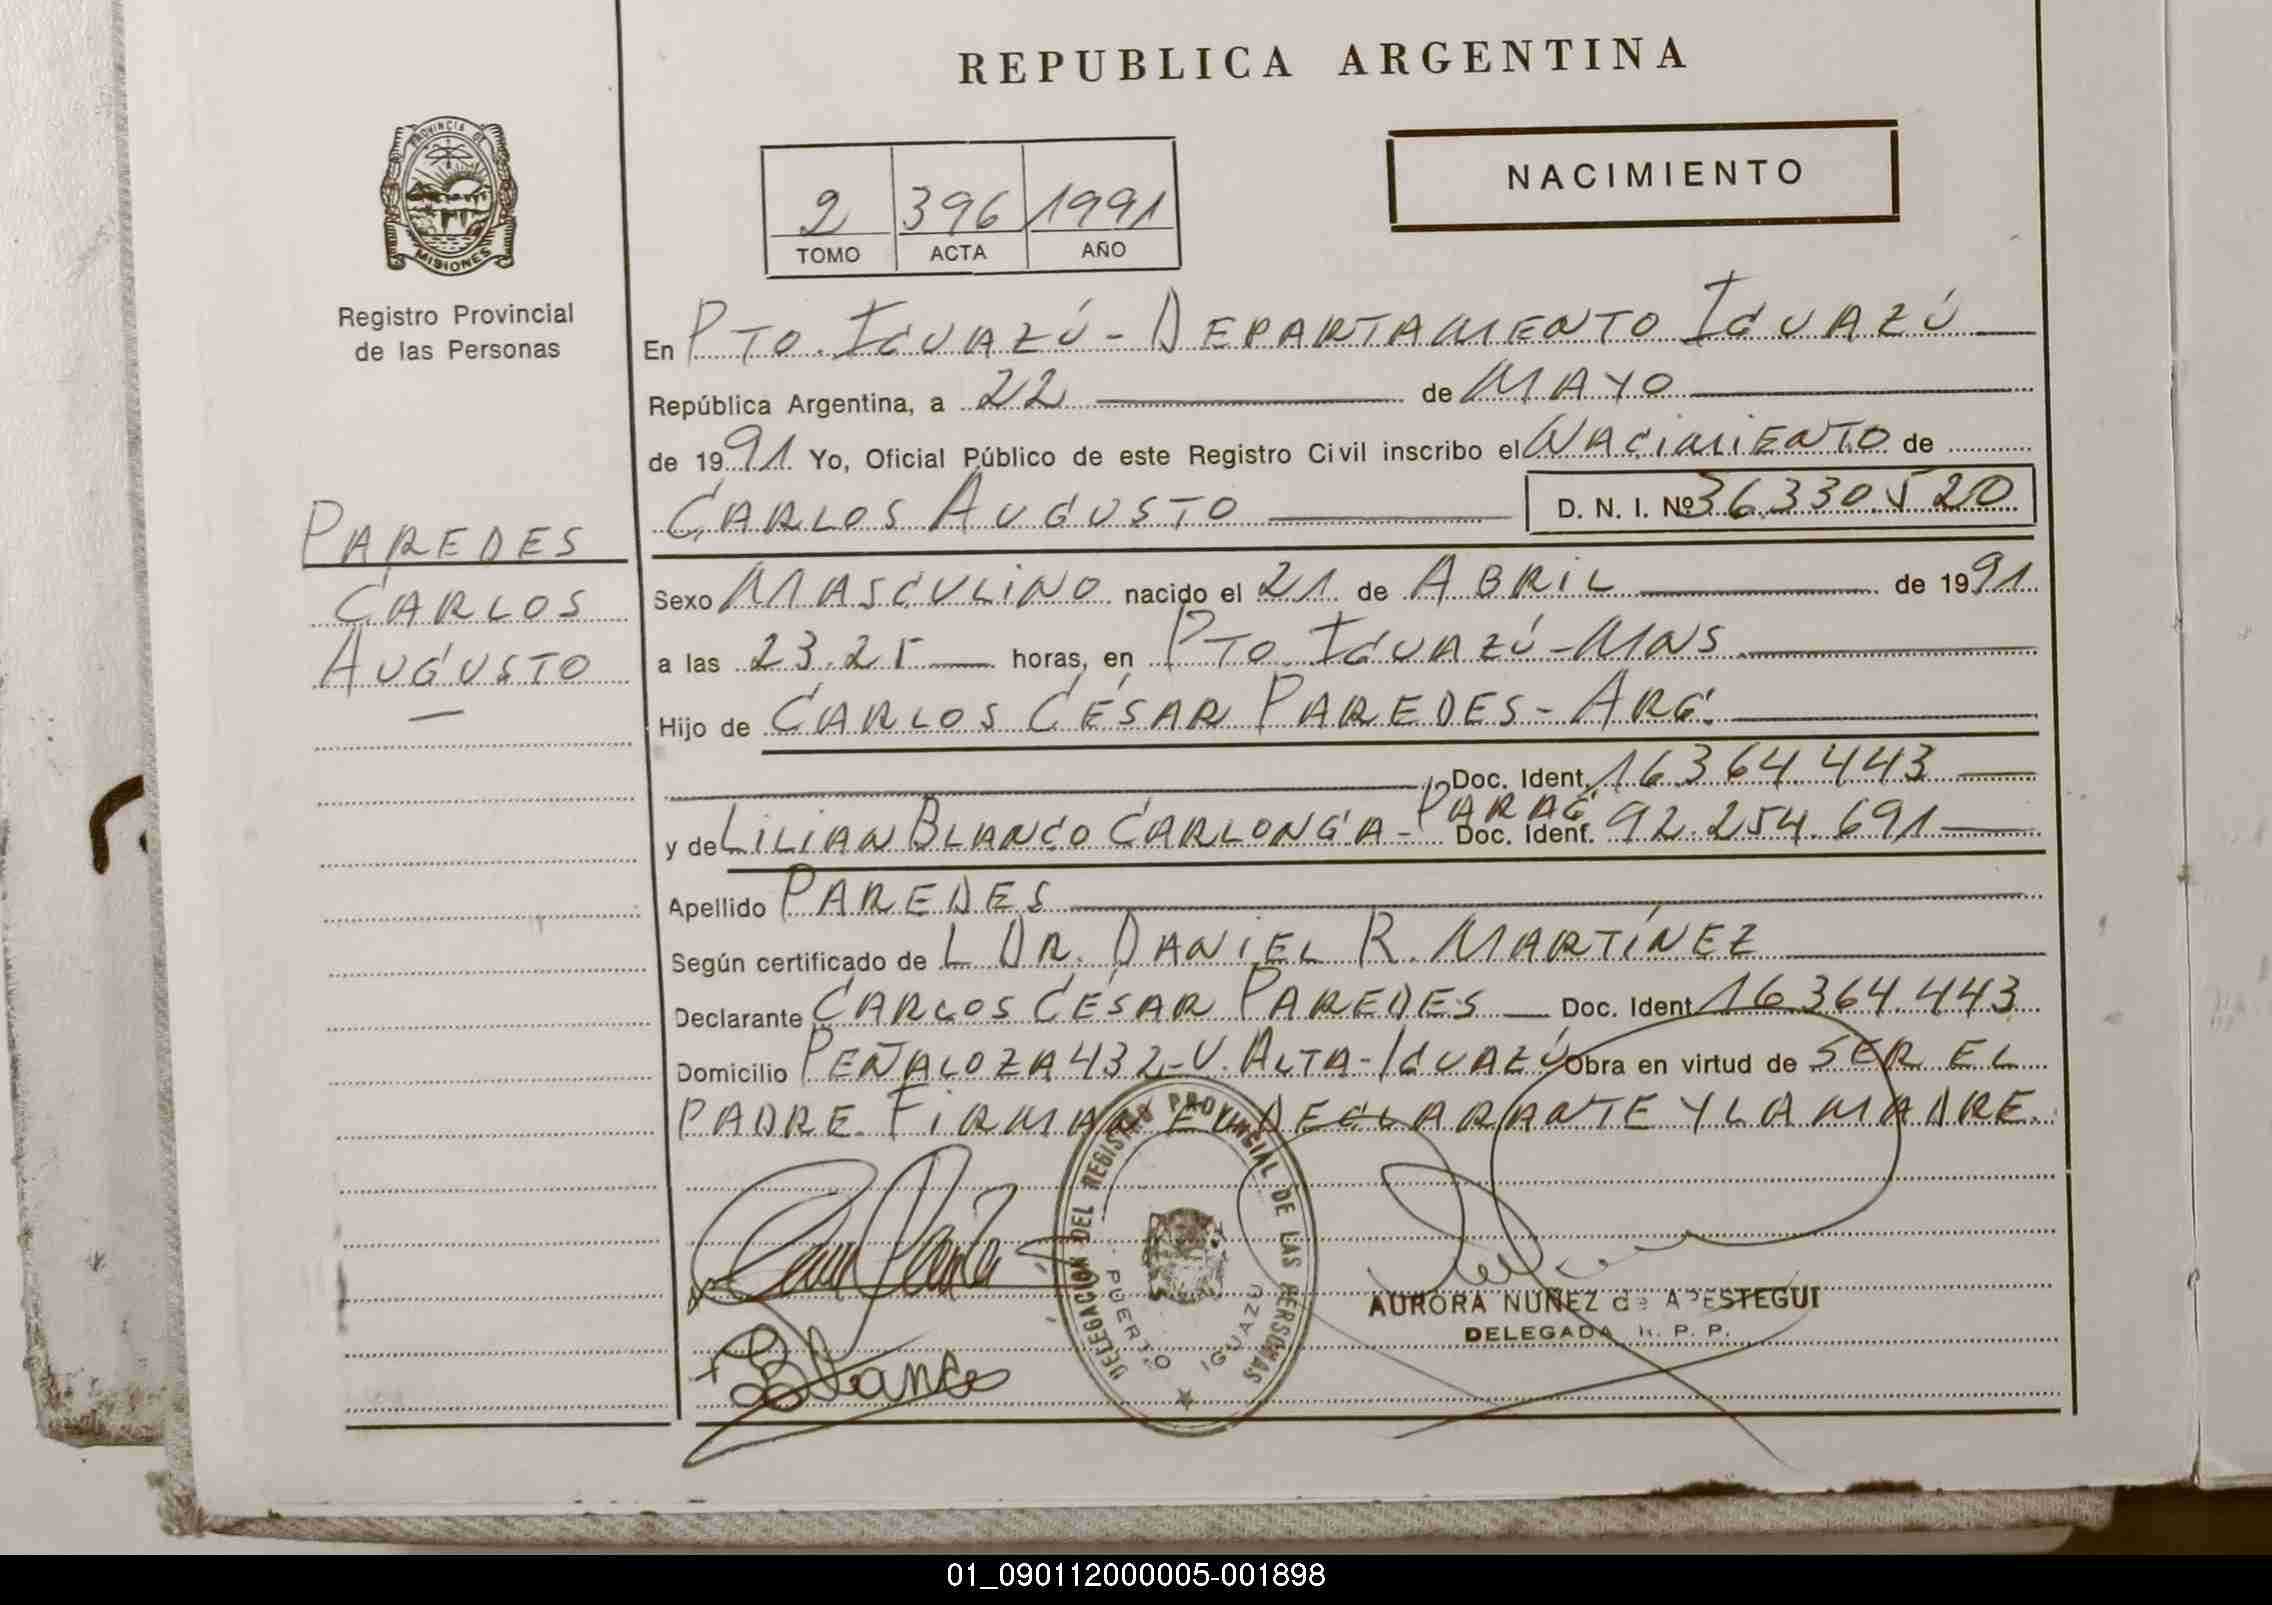 REPUBLICA ARGENTINA
NACIMIENTO
2 396 1991
TOMO ACTA AÑO
PROVINCIA DE MISIONES
Registro Provincial
de las Personas
PAREDES
CARLOS
AUGUSTO
En PTO. IGUAZÚ - DEPARTAMENTO IGUAZÚ
República Argentina, a 22 de MAYO
de 1991 Yo, Oficial Público de este Registro Civil inscribo el NACIMIENTO de
CARLOS AUGUSTO D. N. I. Nº 36.330.520
Sexo MASCULINO nacido el 21 de ABRIL de 1991
a las 23.25 horas, en PTO. IGUAZÚ - MNS.
Hijo de CARLOS CÉSAR PAREDES - ARG.
Doc. Ident. 16.364.443
y de LILIAN BLANCO CARLONGA - PARAG. Doc. Ident. 92.254.691
Apellido PAREDES
Según certificado de L DR. DANIEL R. MARTÍNEZ
Declarante CARLOS CÉSAR PAREDES Doc. Ident 16.364.443
Domicilio PEÑALOZA 432 - V. ALTA - IGUAZÚ Obra en virtud de SER EL
PADRE. FIRMAN EL DECLARANTE Y LA MADRE.
DELEGACION DEL REGISTRO PROVINCIAL DE LAS PERSONAS
PUERTO IGUAZU
AURORA NUÑEZ de APESTEGUI
DELEGADA R. P. P.
Blanco
01_090112000005-001898